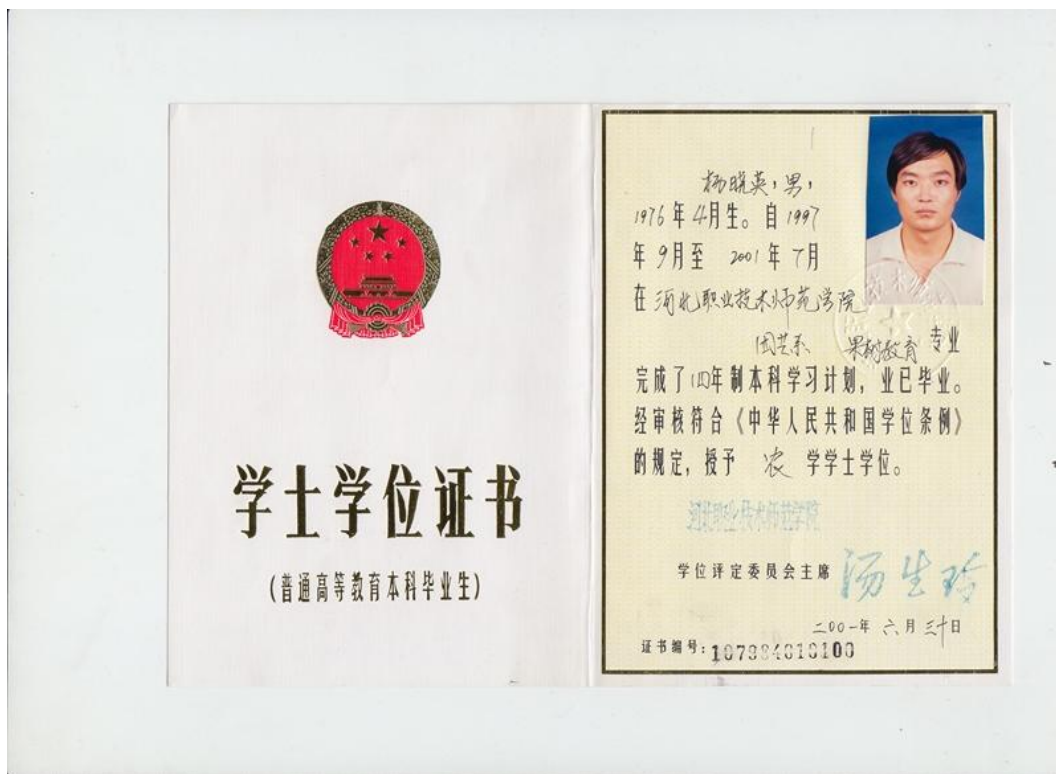 学士学位证书
(普通高等教育本科毕业生)
杨晓英,男,
1976年4月生。自1997
年9月至 2001年7月
在河北职业技术师范学院
园艺系 果树教育专业
完成了四年制本科学习计划,业已毕业。
经审核符合《中华人民共和国学位条例》
的规定,授予 农 学学士学位。
河北职业技术师范学院
学位评定委员会主席 汤生玲
二00一年六月三十日
证书编号: